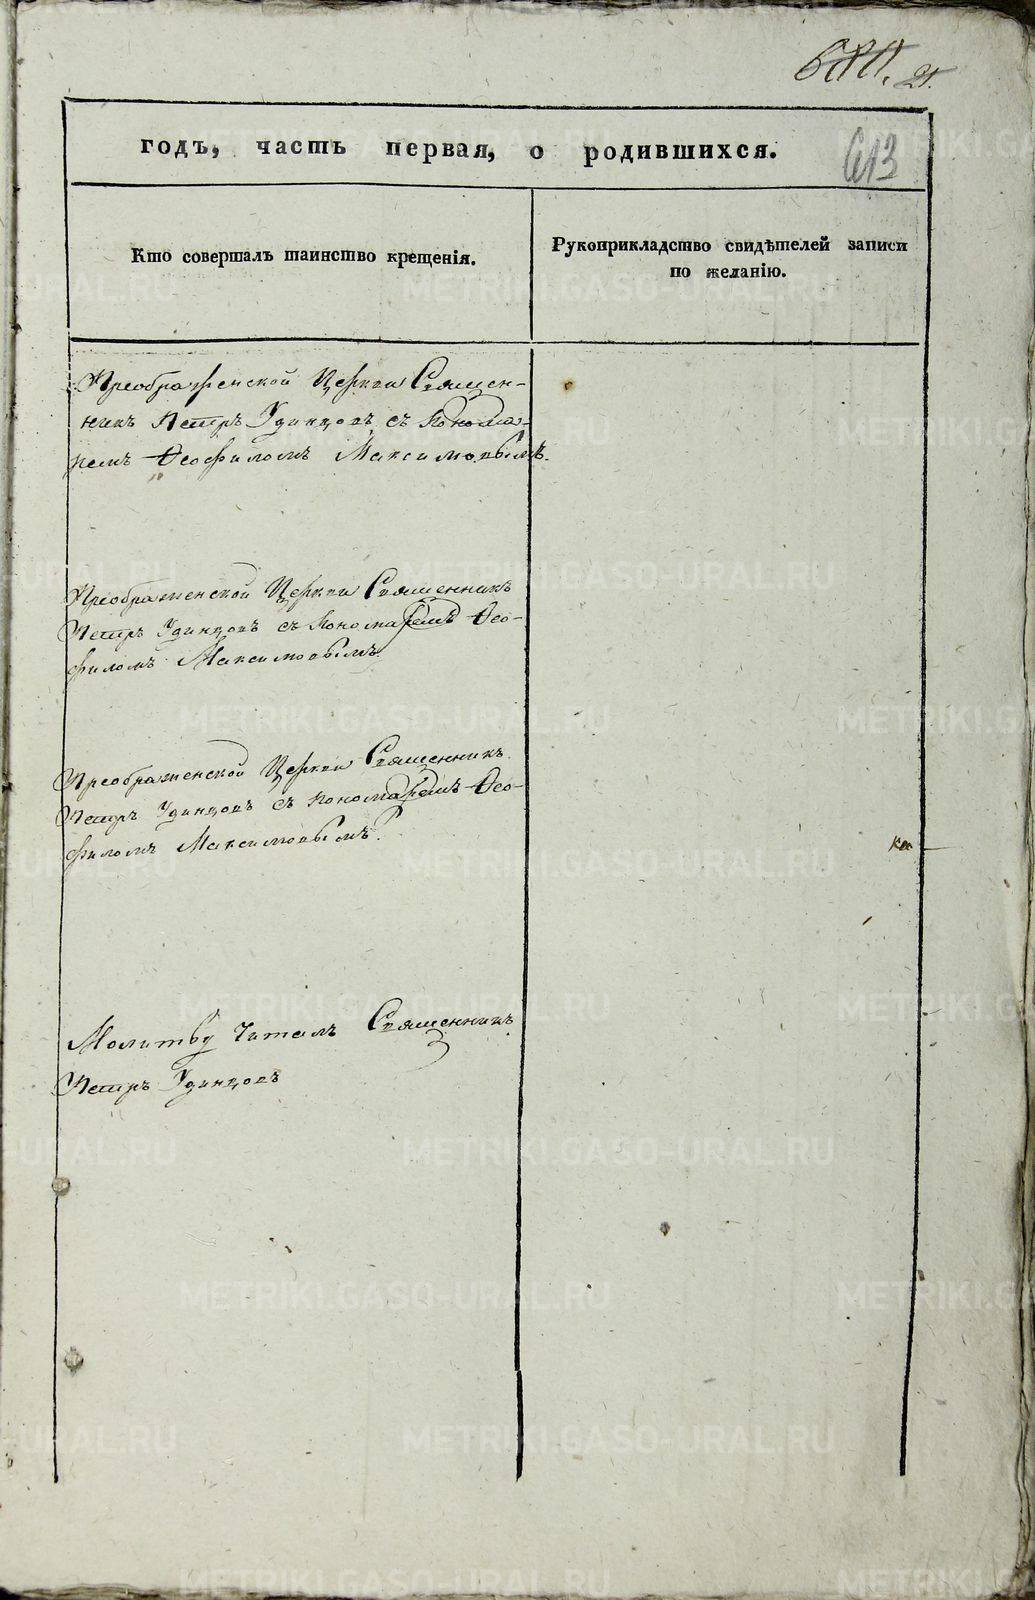 21.
613
годъ, часть первая, о родившихся.
Кто совершалъ таинство крещенія.
Рукоприкладство свидѣтелей записи
по желанію.
Преображенской Церкви Священ-
никъ Петръ Удинцовъ съ Понома-
ремъ Ѳеофиломъ Максимовымъ.
Преображенской Церкви Священникъ
Петръ Удинцовъ съ Пономаремъ Ѳео-
филомъ Максимовымъ
Преображенской Церкви Священникъ
Петръ Удинцовъ съ Пономаремъ Ѳео-
филомъ Максимовымъ.
Молитву Читалъ Священникъ
Петръ Удинцовъ
METRIKI.GASO-URAL.RU